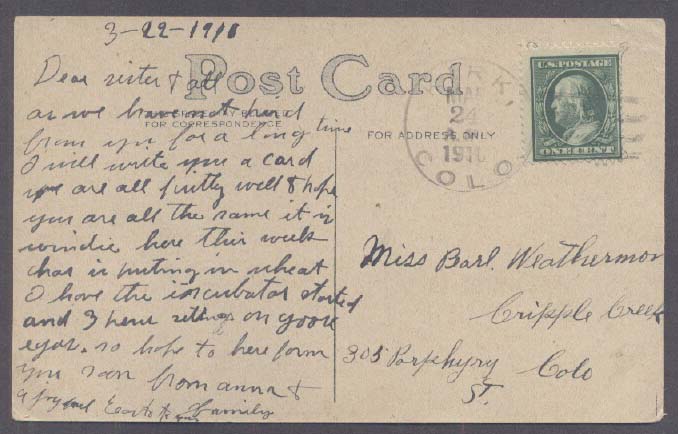 3-22-1911
Post Card
Dear sister & all
as we have not hird
FOR CORRESPONDENCE
from you for a long time
FOR ADDRESS ONLY
I will write you a card
we are all pritty well & hope
you are all the same it is
windie here this week
chas is puting in wheat
I have the incubator started
and 3 hens on goose
egas. so hope to here form
you soon from anna &
family
MAR
24
191
COLO
U.S. POSTAGE
ONE CENT
Miss Barl. Weathermon
Cripple Creek
305 Porphyry Colo
St.